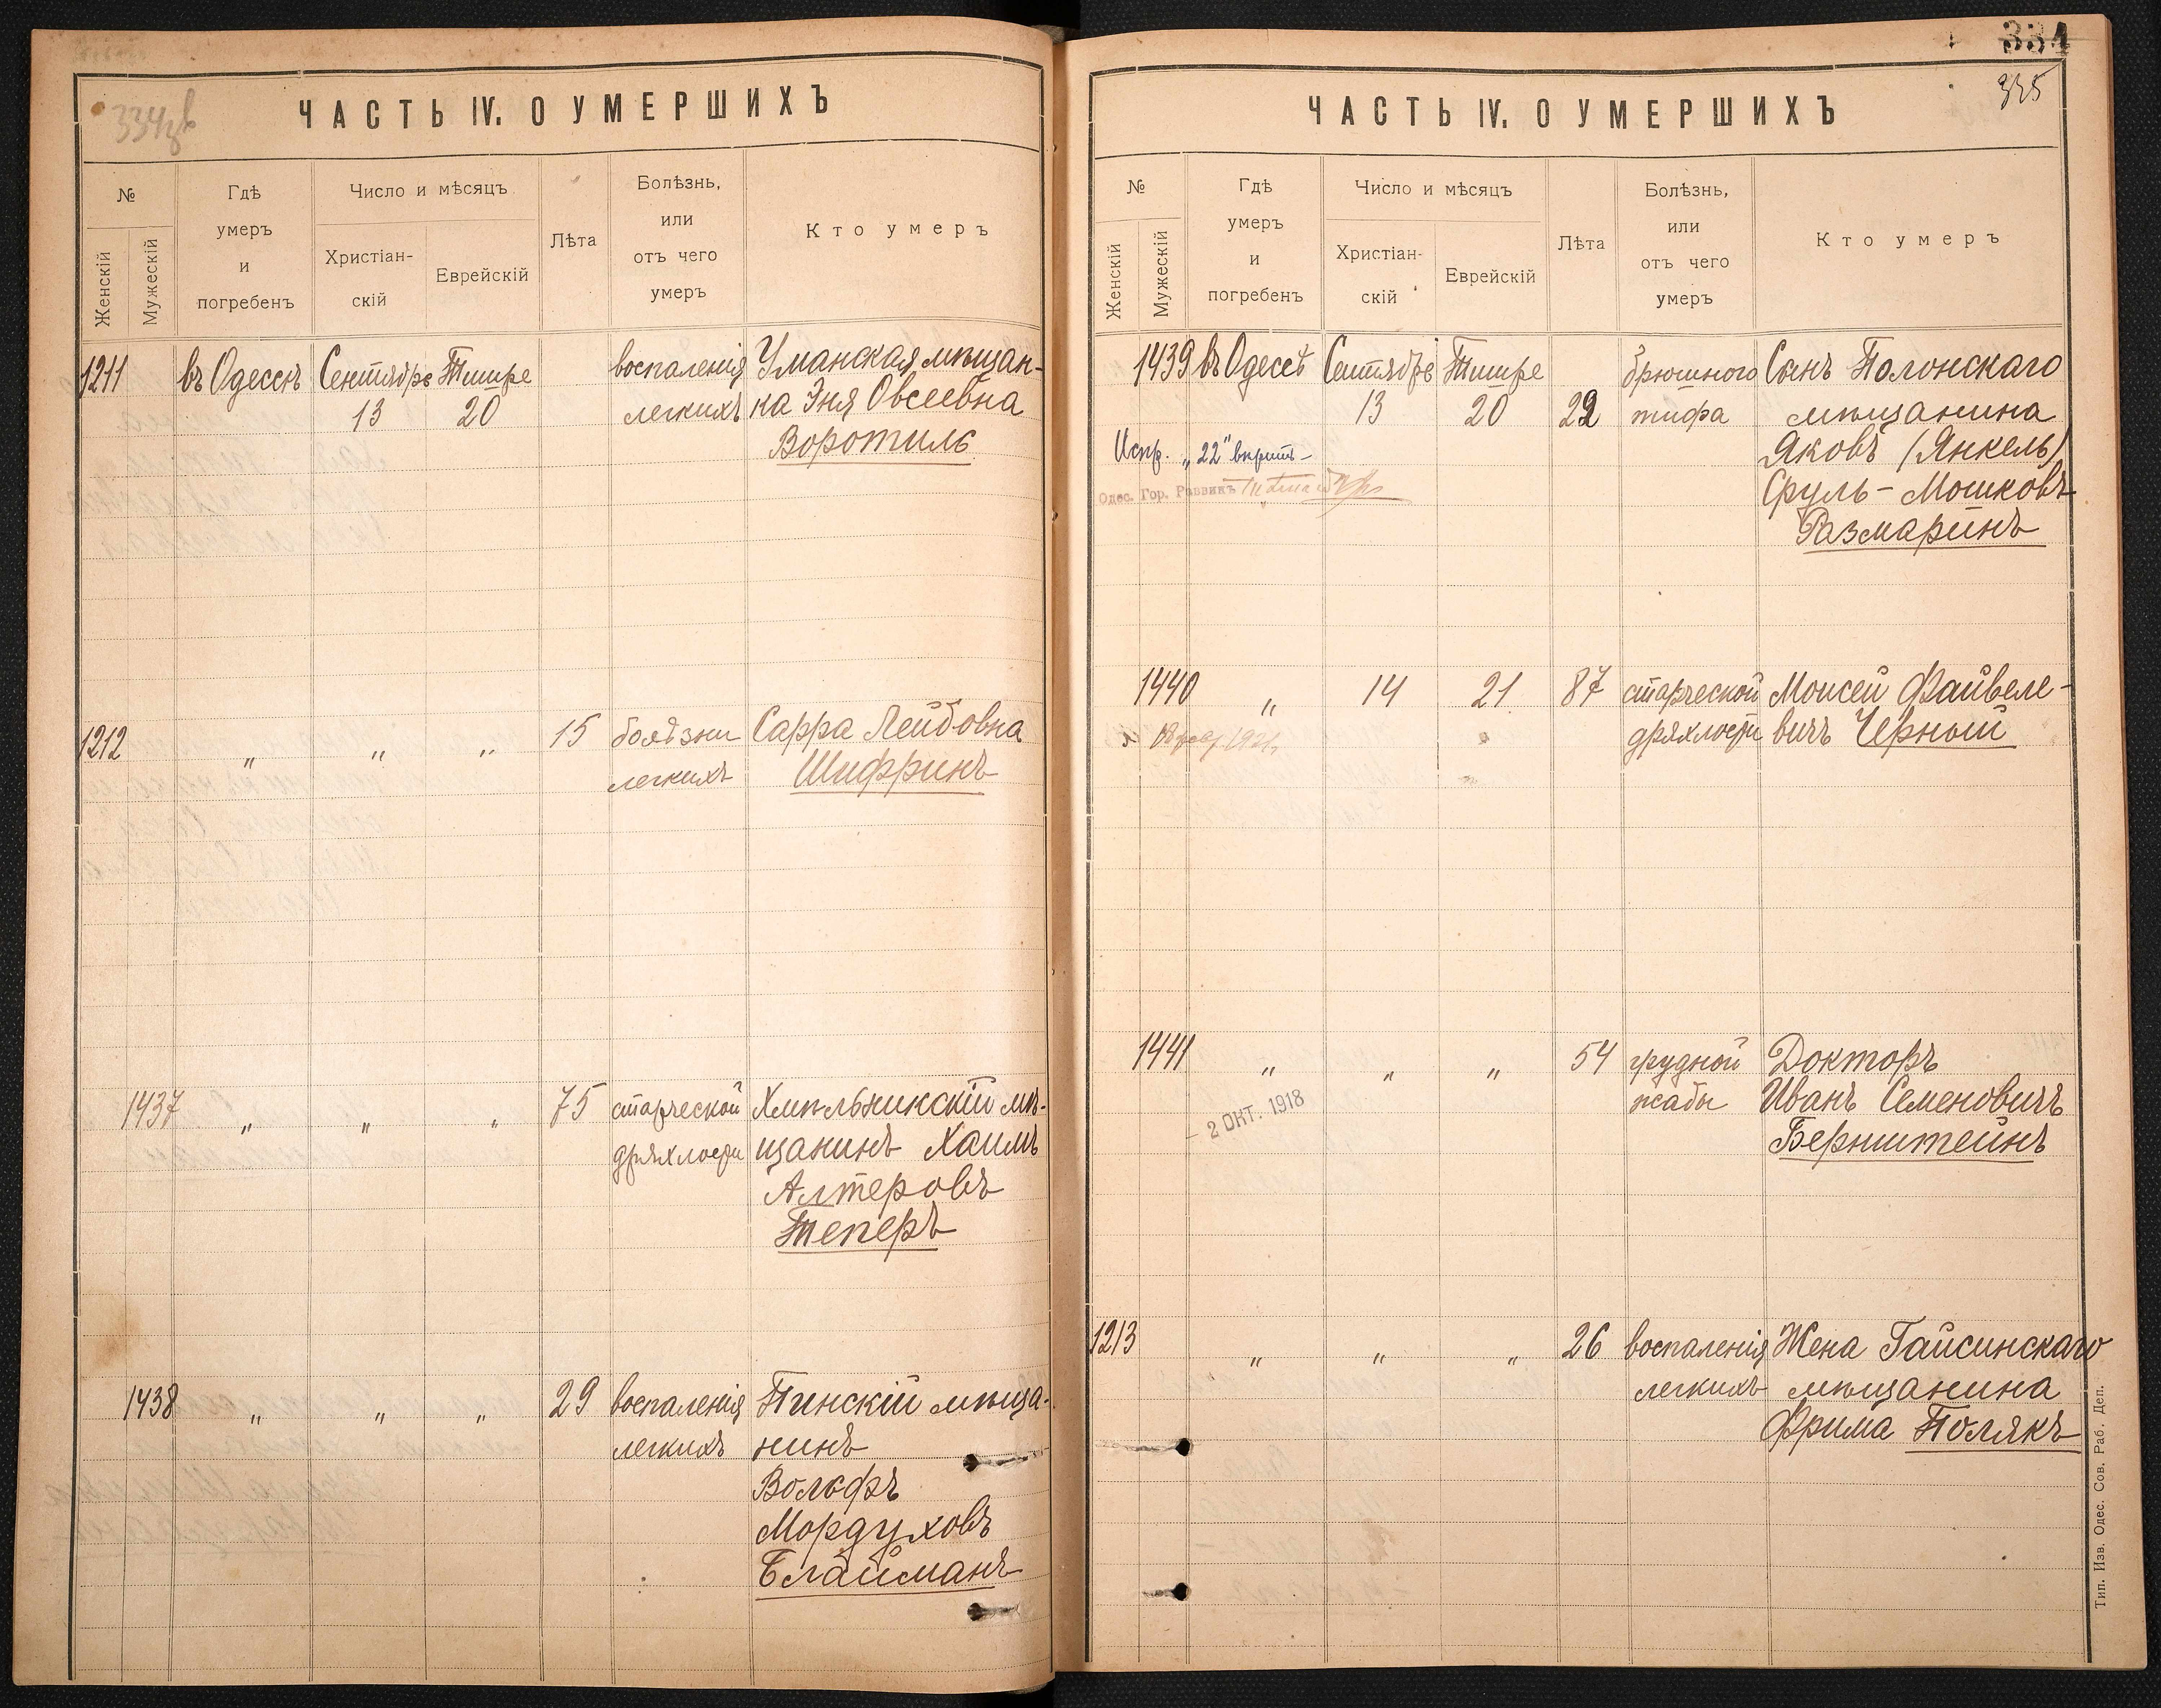 334
ЧАСТЬ IV. О УМЕРШИХЪ
№
Женскій
Мужескій
Гдѣ
умеръ
и
погребенъ
Число и мѣсяцъ
Христіан-
скій
Еврейскій
Лѣта
Болѣзнь,
или
отъ чего
умеръ
Кто умеръ
1211 въ Одессѣ Сентябрь Тишре воспаленія Уманская мѣщан-
13 20 легкихъ ка Эня Овсеевна
Воротиль
1212 " " " 15 болѣзни Сарра Лейбовна
легкихъ Шифринъ
1437 " " " 75 старческой Хмѣльникскій мѣ-
дряхлости щанинъ Хаимъ
Алтеровъ
Теперъ
1438 " " " 29 воспаленія Пинскій мѣща-
легкихъ нинъ
Вольфъ
Мордуховъ
Блайманъ
334
335
ЧАСТЬ IV. О УМЕРШИХЪ
№
Женскій
Мужескій
Гдѣ
умеръ
и
погребенъ
Число и мѣсяцъ
Христіан-
скій
Еврейскій
Лѣта
Болѣзнь,
или
отъ чего
умеръ
Кто умеръ
1439 въ Одессѣ Сентябрь Тишре брюшного Сынъ Полонскаго
13 20 22 тифа мѣщанина
Испр. „22" Яковъ (Янкель)
Одес. Гор. Раввинъ Сруль-Мошковъ
Размаринъ
1440 " 14 21 87 старческой Моисей Файвеле-
дряхлости вичъ Черный
1441 " " " 54 грудной Докторъ
жабы Иванъ Семеновичъ
- 2 ОКТ. 1918 Бернштейнъ
1213 " " " 26 воспаленія Жена Гайсинскаго
легкихъ мѣщанина
Фрима Полякъ
Тип. Изв. Одес. Сов. Раб. Деп.